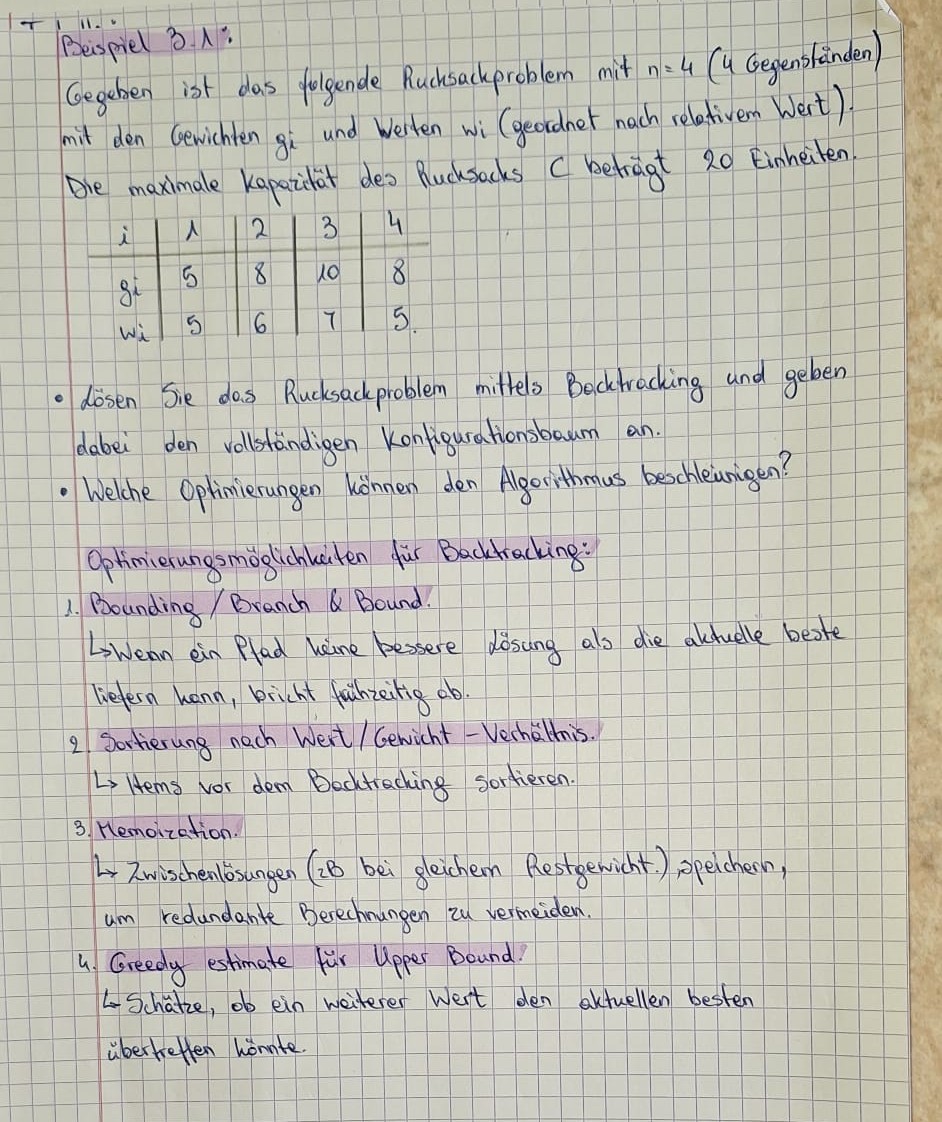 Beispiel 3.1:
Gegeben ist das folgende Rucksackproblem mit n=4 (4 Gegenständen)
mit den Gewichten gi und Werten wi (geordnet nach relativem Wert).
Die maximale Kapazität des Rucksacks C beträgt 20 Einheiten.
i 1 2 3 4
gi 5 8 10 8
wi 5 6 7 5.
• Lösen Sie das Rucksackproblem mittels Backtracking und geben
dabei den vollständigen Konfigurationsbaum an.
• Welche Optimierungen können den Algorithmus beschleunigen?
Optimierungsmöglichkeiten für Backtracking:
1. Bounding / Branch & Bound.
↳ Wenn ein Pfad keine bessere Lösung als die aktuelle beste
liefern kann, bricht frühzeitig ab.
2. Sortierung nach Wert/Gewicht-Verhältnis.
↳ Items vor dem Backtracking sortieren.
3. Memoization.
↳ Zwischenlösungen (zB bei gleichem Restgewicht.) speichern,
um redundante Berechnungen zu vermeiden.
4. Greedy estimate für Upper Bound:
↳ Schätze, ob ein weiterer Wert den aktuellen besten
übertreffen könnte.